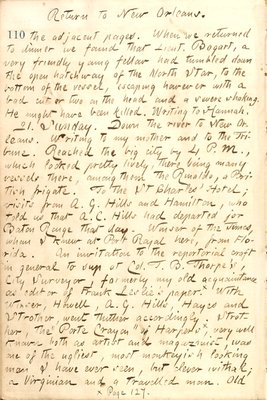 Return to New Orleans.
110 the adjacent pages. When we returned
to dinner we found that Lieut. Bogart, a
very friendly young fellow had tumbled down
the open hatchway of the North Star, to the
bottom of the vessel, escaping however with a
bad cut or two on the head and a severe shaking.
He might have been killed. Writing to Hannah.
21. Sunday. Down the river to New Or-
leans. Writing to my mother and to the Tri-
bune. Reached the big city by 4 P.M.,
which looked pretty lively, there being many
vessels there, among them the Rinaldo, a Bri-
tish frigate. To the St Charles Hotel;
visits from A. G. Hills and Hamilton, who
told us that A. C. Hills had departed for
Baton Rouge that day. Winser of the Times,
whom I knew at Port Royal here, from Flo-
rida. An invitation to the reportorial craft
in general to sup at Col. T. B. Thorpe's,
City Surveyor, formerly my old acquaintance
as editor of Frank Leslie's paper. With
Winser, Howell, A. G. Hills, Hayes and
Strother, went thither accordingly. Strot-
her, the "Porte Crayon" of Harper's, very well
known both as artist and magazinist, was
one of the ugliest, most monkeyish looking
men I have ever seen, but clever withal;
a Virginian and a travelled man. Old
x Page 127.